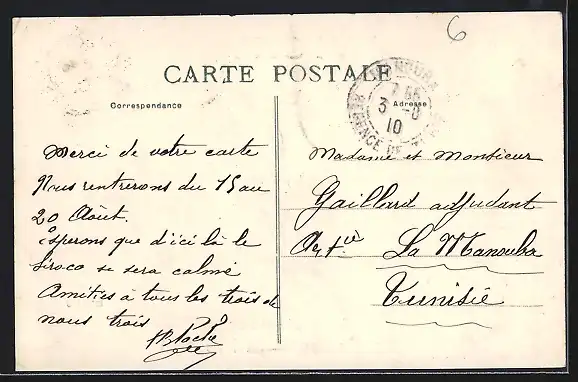 6
CARTE POSTALE
Correspondance
Adresse
3 -8
10
RÉGENCE DE TUNIS
Merci de votre carte
Nous rentrerons du 15 au
20 Août.
espérons que d'ici là le
Siroco se sera calmé
Amitiés à tous les trois de
nous trois
Madame et Monsieur
Gaillard adjudant
La Manouba
Tunisie